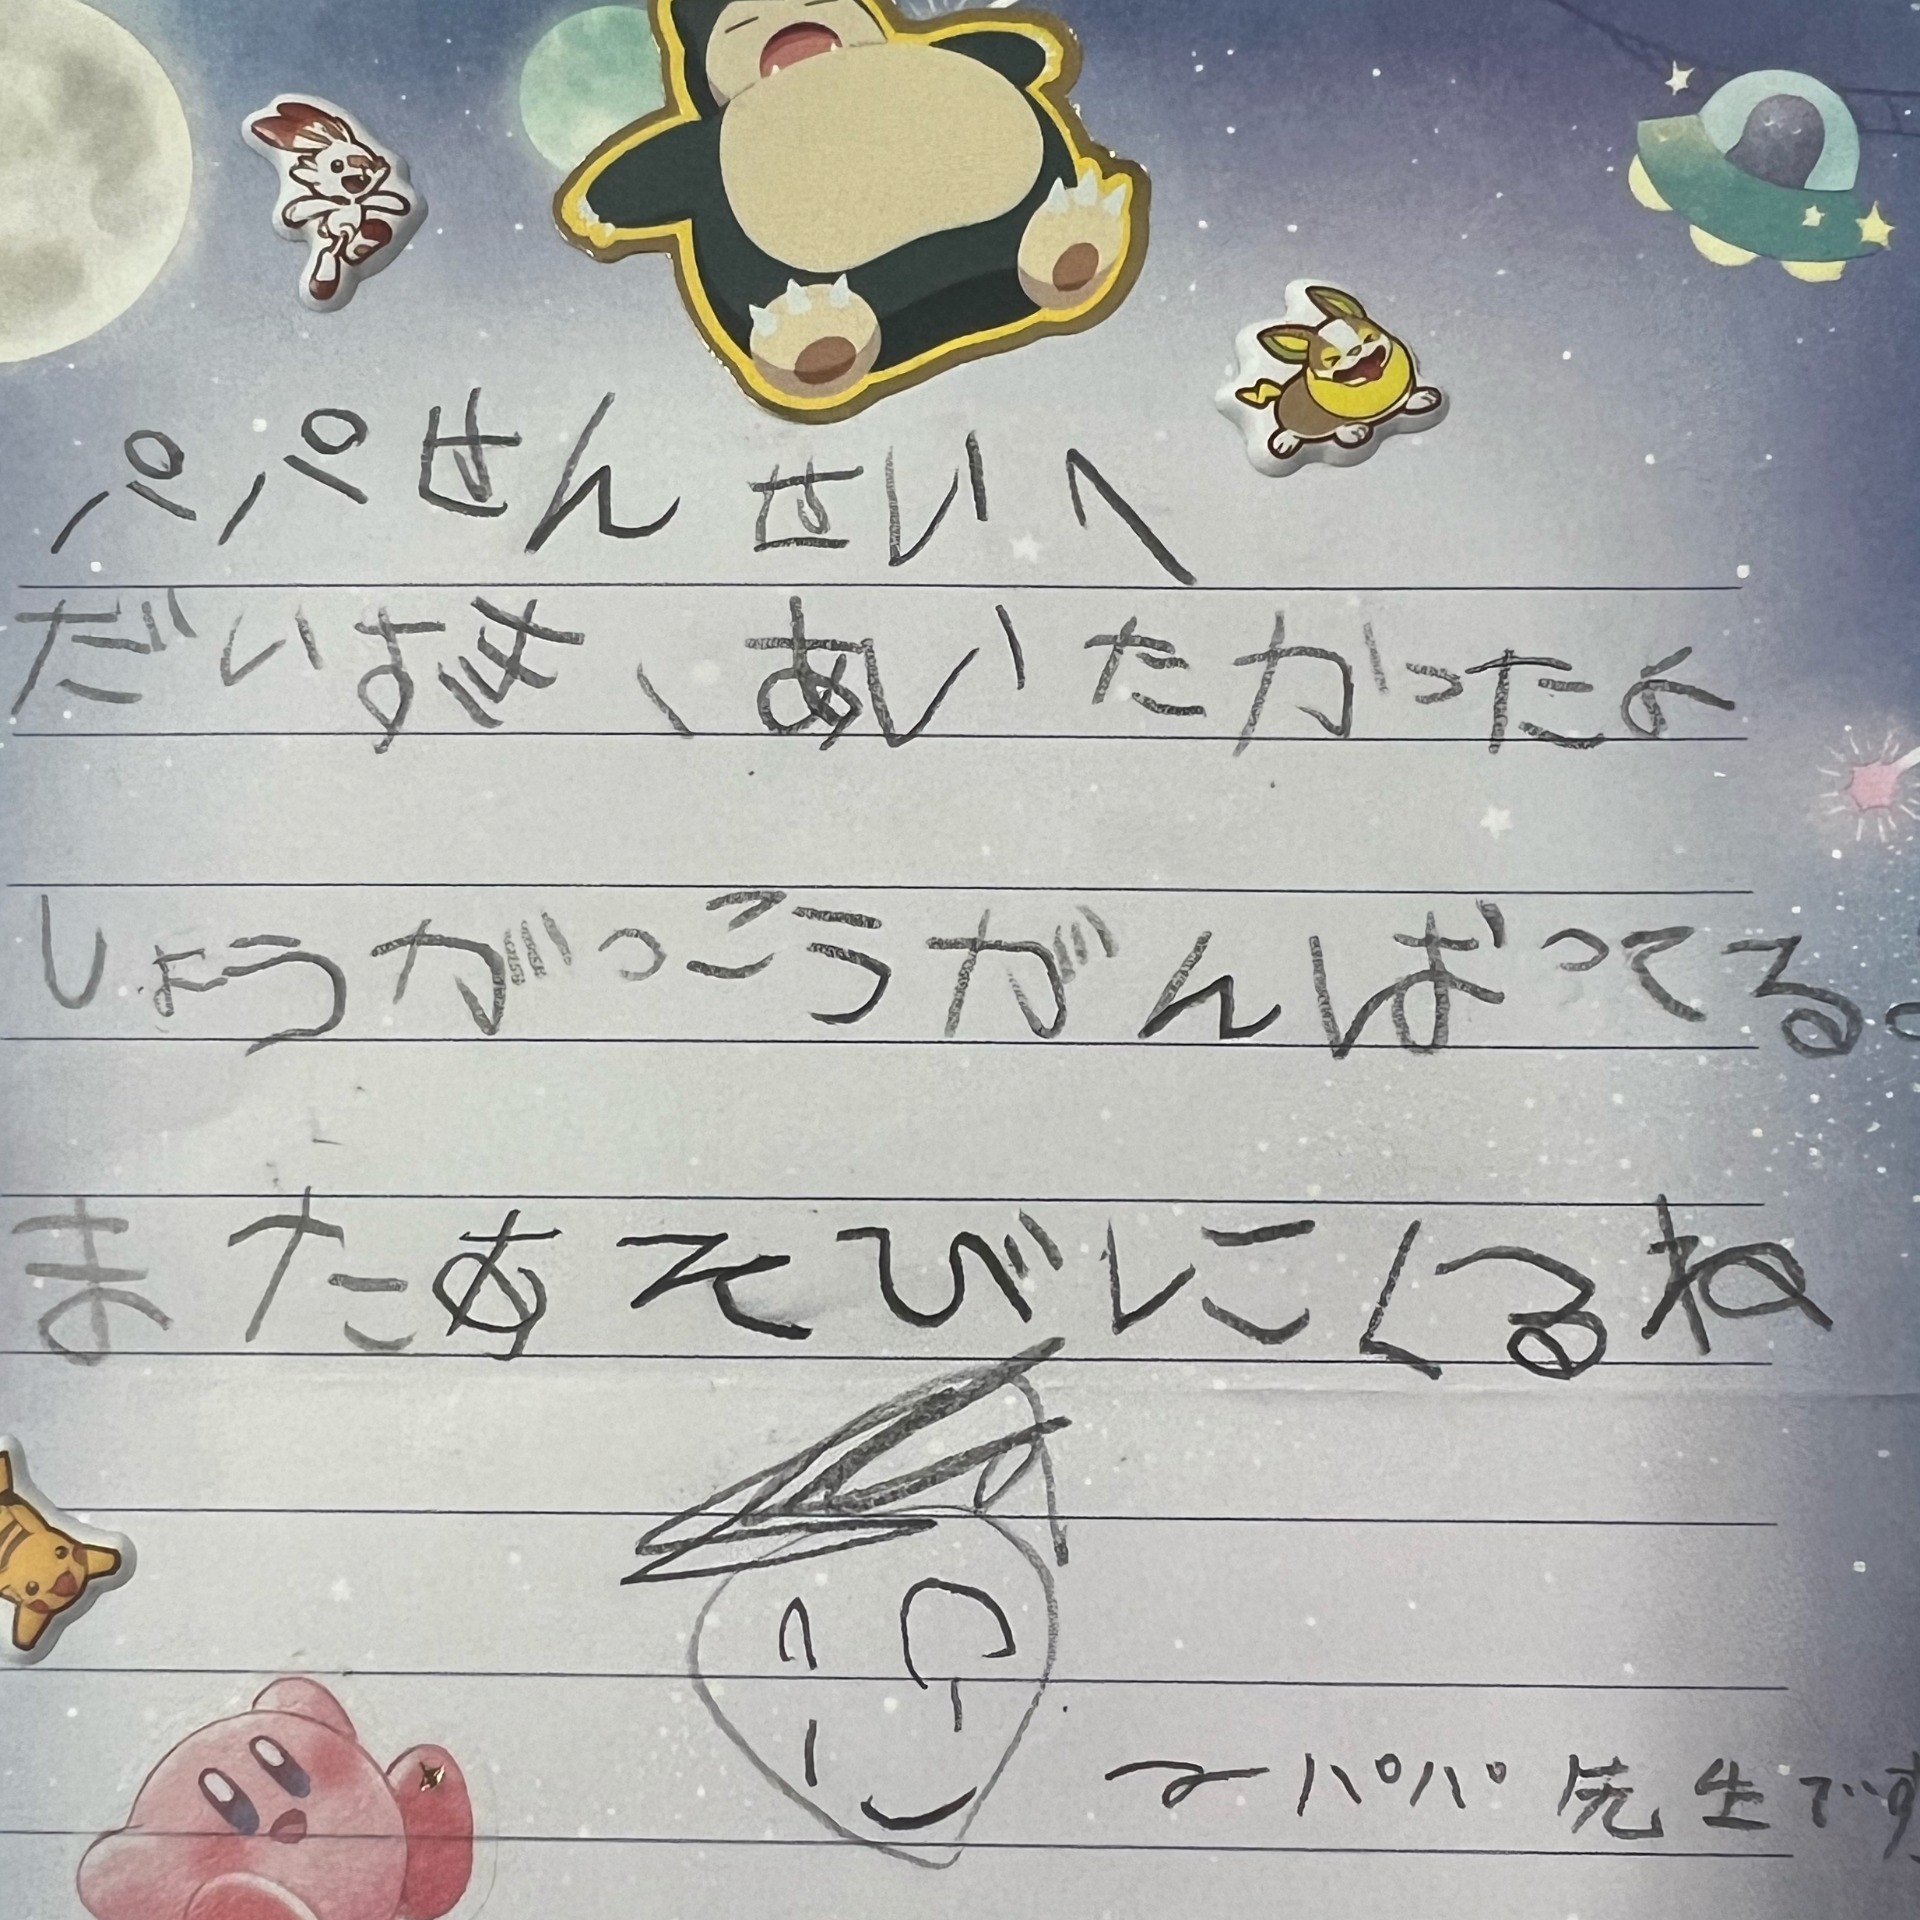 パパせんせいへ
だいすき、あいたかったよ
しょうがっこうがんばってる。
またあそびにくるね
〜パパ先生です